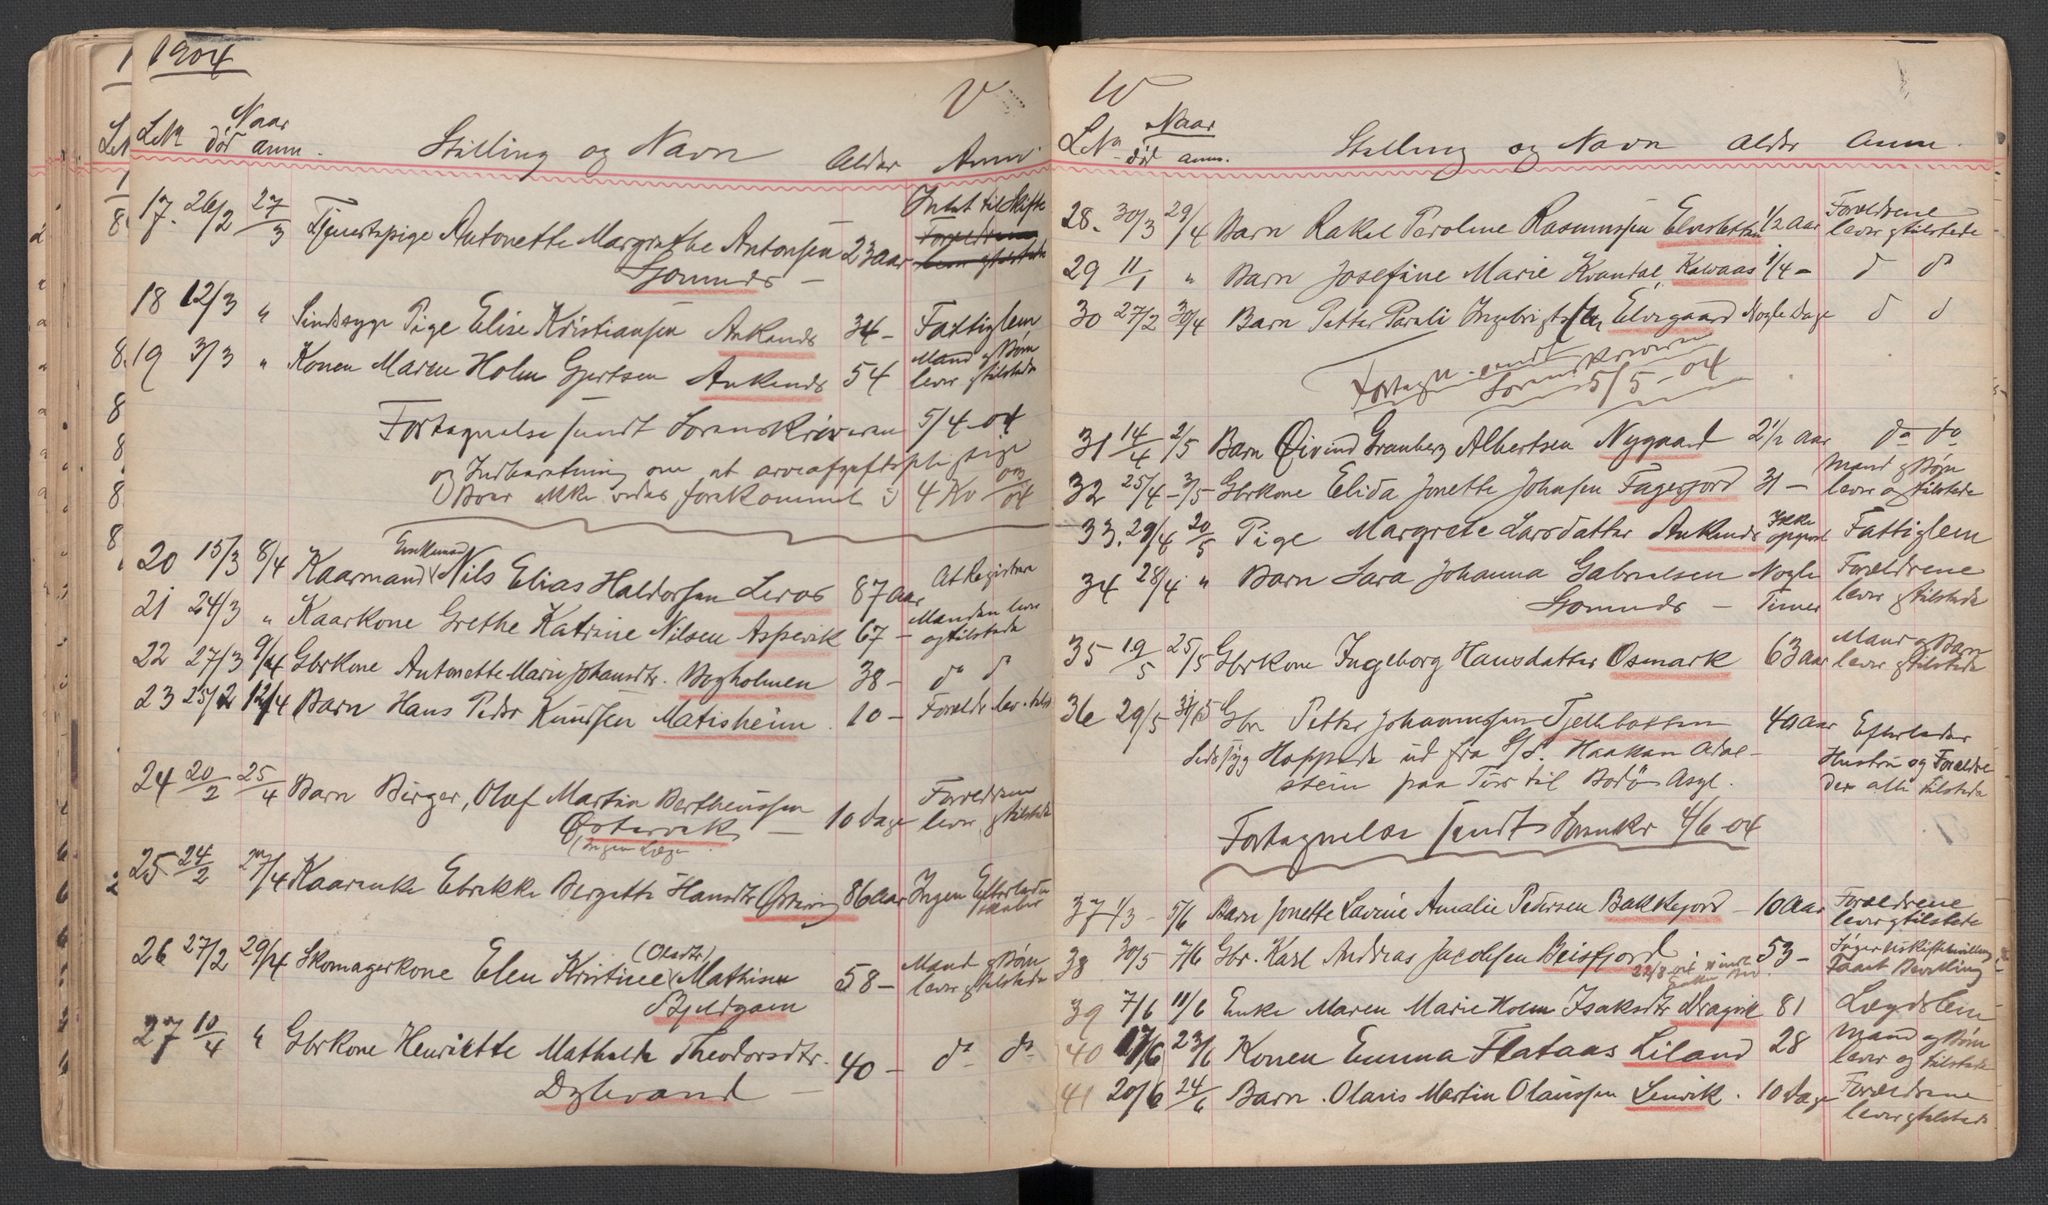 1904
V
L№ Naar
dör anm. Stilling og Navn Alder Anm.
17. 26/2 27/3 Tjenestepige Antonette Margrethe Antonsen 23 aar Intet til Skifte
Forældrene
lever og tilstede
18 12/3 " Sindssyge Pige Elise Kristiansen Ankenes 34 - Fattiglem
19 3/3 " Konen Maren Holm Gjertsen Ankenes 54 Mand og Børn
lever og tilstede
Fortegnelse sendt Sorenskriveren 5/4-04
og Indberetning om at arveafgiftspligtige
Boer ikke vides forekommet i 4 Kv
04
20 15/3 8/4 Kaarmand Enkemand Nils Elias Haldorsen Leros 87 aar At Registrere
21 24/3 " Kaarkone Grethe Katrine Nilsen Aspevik 67 - Manden lever
og tilstede
22 27/3 9/4 Gbrkone Antonette Marie Johansdtr. Bogholmen 38 - do d
23 25/2 12/4 Barn Hans Peder Knudsen Matisheim 10 - Forældr lev. tilst
24 20/2 25/4 Barn Birger, Olaf Martin Bertheussen 10 Dage Forældrene
lever og tilstede
Østervik
(Ingen Læge)
25 24/2 27/4 Kaarenke Ebrikke Bergitte Hansdtr 86 aar Ingen Efterladte
26 27/2 29/4 Skomagerkone Elen Kristine (Olsdtr) Mathisen 58 - Mand og Børn
lever og tilstede
Bjeldgam
27 10/4 " Gbrkone Henriette Mathilde Theodorsdtr. 40 - do do
Dylvand
W
L№ Naar
död anm. Stilling og Navn Alder Anm.
28. 30/3 29/4 Barn Rakel Peroline Rasmussen Elvesletten 1/2 aar Forældrene
lever og tilstede
29 11/1 " Barn Josefine Marie Kvandal, Kalvaas 1/4 - d do
30 27/2 30/4 Barn Petter Pareli Ingebrigtsen Elvegaard Nogle Dage d d
Fortegn. sendt
Sorenskriveren
5/5-04
31 14/4 2/5 Barn Øivind Granberg Albertsen Nygaard 2 1/2 aar do do
32 25/4 - 3/5 Gbrkone Elida Jonette Johnsen Fagerjord 31 - Mand og Børn
lever og tilstede
33. 29/4 20/5 Pige Margrete Larsdatter Ankenes Ikke
opgivet Fattiglem
34 28/4 " Barn Sara Johanna Gabrielsen Nogle
Timer Forældrene
lever og tilstede
35 19/5 25/5 Gbrkone Ingeborg Hansdatter Osmark 63 aar Mand og Børn
lever og tilstede
36 29/5 31/5 Gbr Petter Johannessen Tjellebotten 40 aar Efterlader
Sindssyg Hoppede ud fra S/S. Haakon Adal- Hustru og Forældre
stein paa Tur til Bodø Asyl. der alle tilstede
Fortegnelse sendt Sorenskr 4/6-04
37 1/3 - 5/6 Barn Jonette Lavine Amalie Petersen Bakkejord - 10 aar Forældrene
lever og tilstede
38 30/5 7/6 Gbr. Karl Andreas Jacobsen Beisfjord 53 -
39 7/6 11/6 Enke Maren Marie Holm Isaksdtr Dragvik 81 Lægdslem
40 17/6 23/6 Konen Emma Flataas Liland 28 Mand og Børn
lever og tilstede
41 20/6 24/6 Barn. Olaris Martin Olaussen Lenvik. 10 Dage Forældrene
lever og tilstede